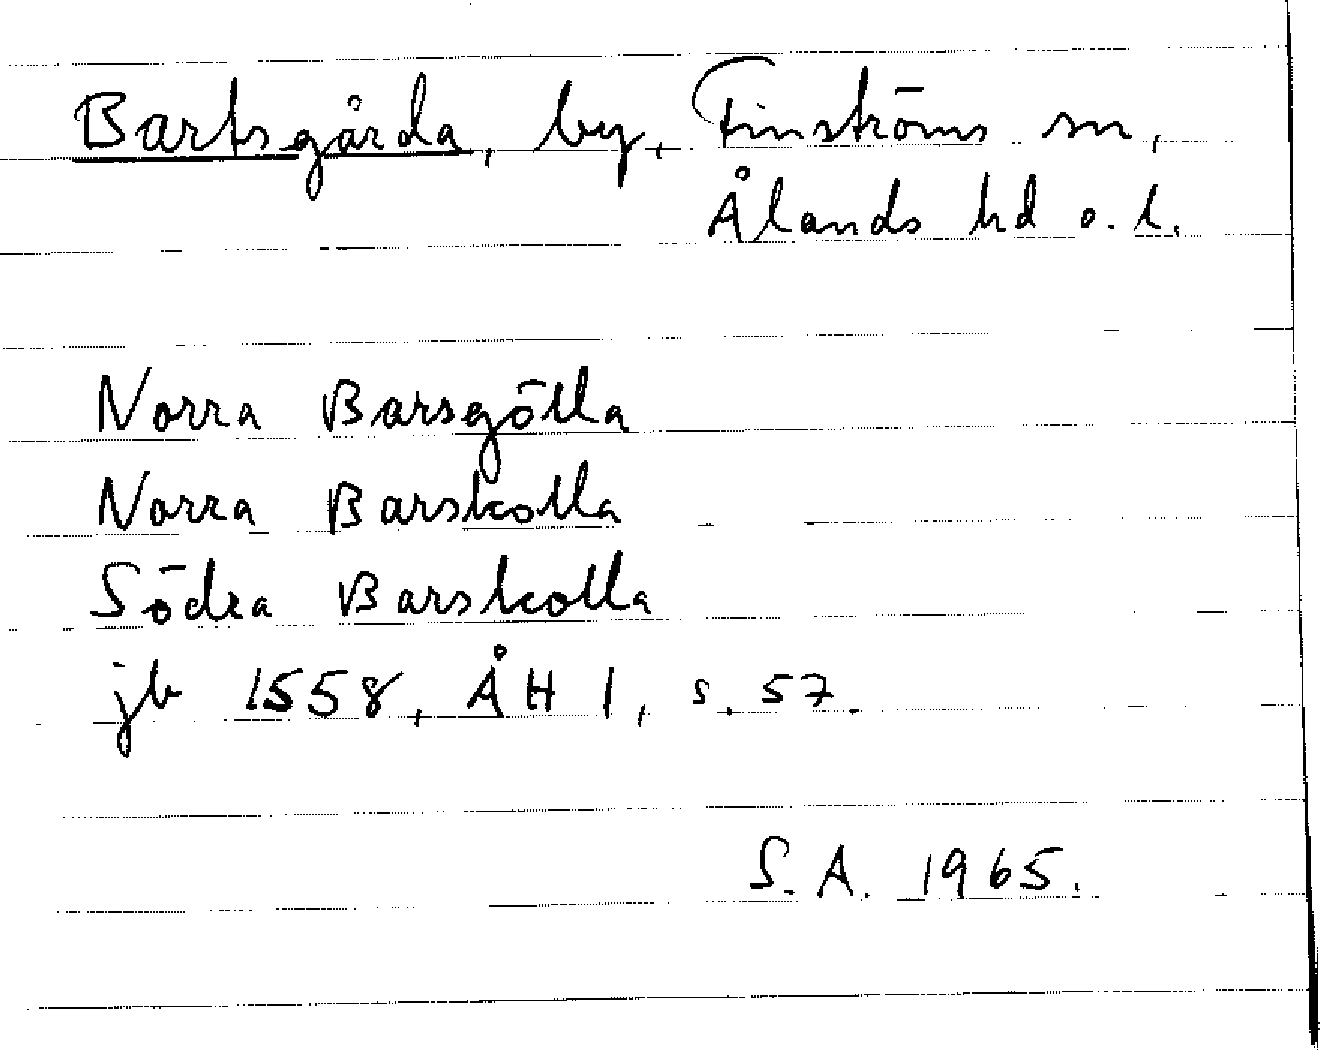 Bartsgårda, by, Finströms sn,
Ålands hd o. l.
Norra Barsgölla
Norra Barskolla
Södra Barskolla
jb 1558, ÅH I, s. 57.
S. A. 1965.